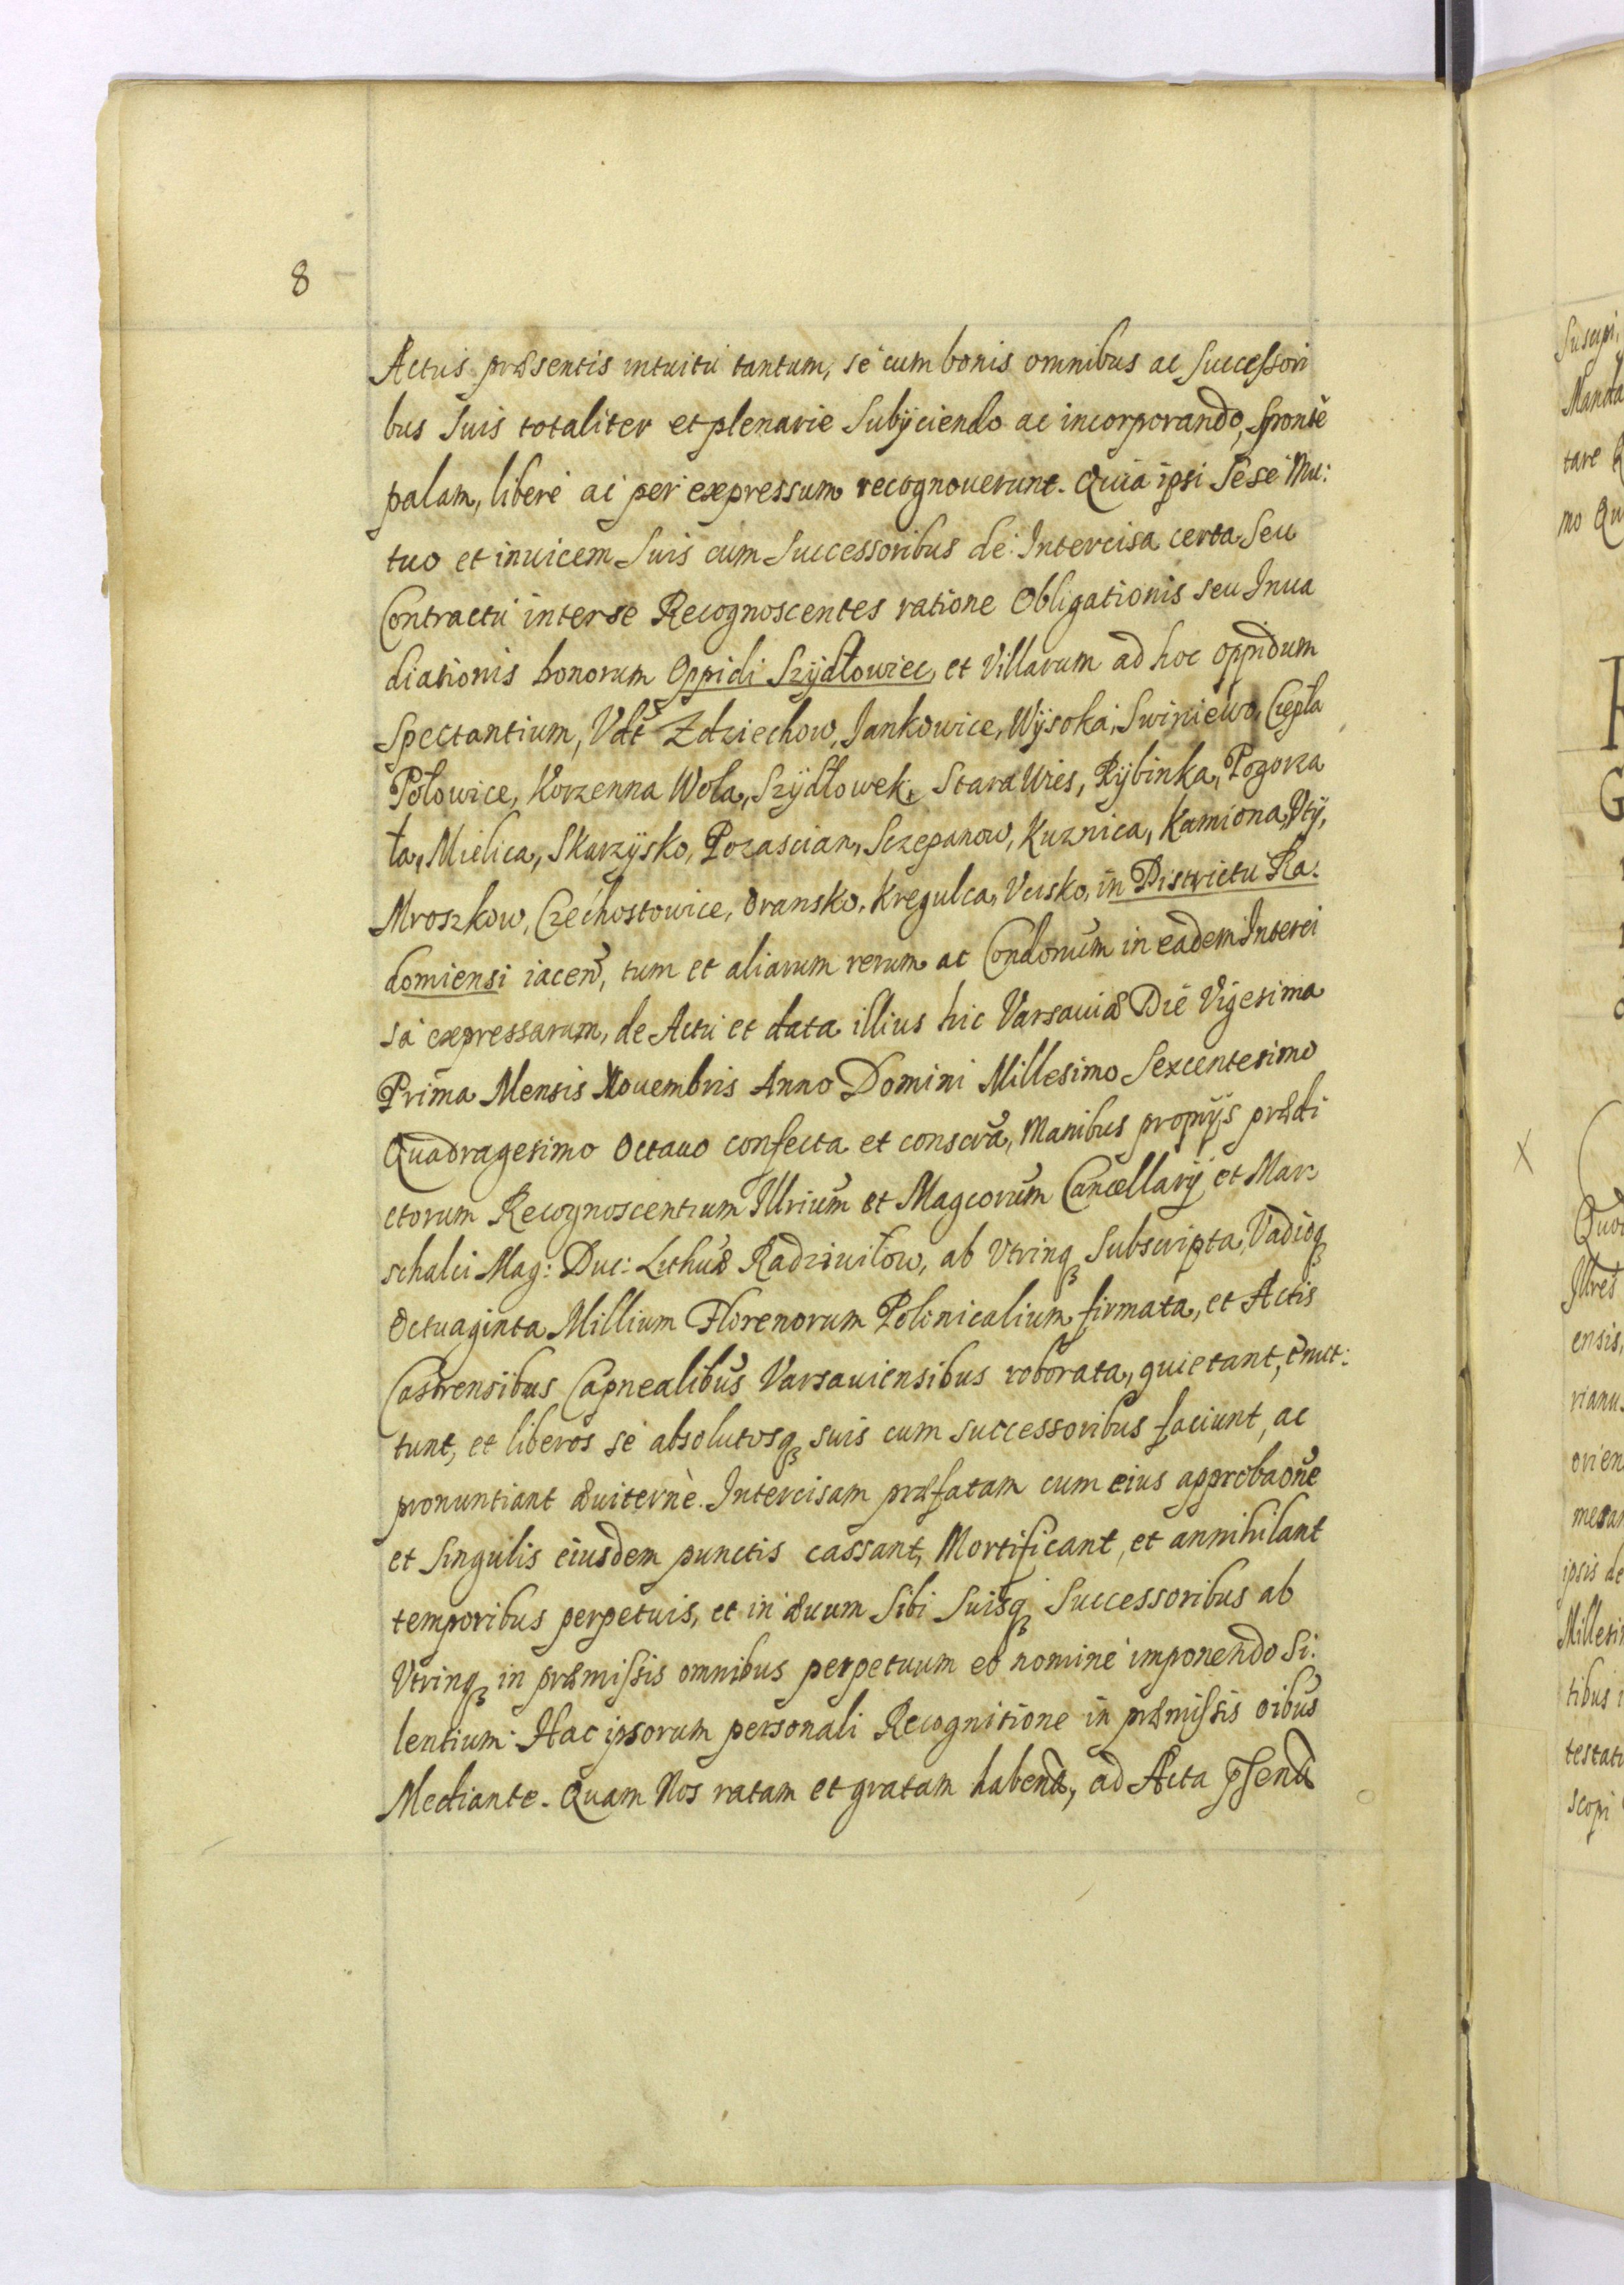 8
Actus præsentis intuitu tantum, se cum bonis omnibus ac Successori
bus Suis totaliter et plenarie Subÿciendo ac incorporando, Sponte
palam, libere ac per expressum recognouerunt. Quia ipsi Sese Mu:
tuo et inuicem Suis cum Successoribus de Intercisa certa Seu
Contractu interse Recognoscentes ratione Obligationis seu Inua
diationis bonorum Oppidi Szÿdłowiec, et Villarum ad hoc oppidum
Spectantium, Vdt Zdziechow, Jankowice, Wÿsoka, Swiniewo, Ciepła
Połowice, Korzenna Wola, Szÿdłowek, Stara Wies, Rÿbinka, Pogorza
ła, Mielica, Skarzÿsko, Pozascian, Sczepanow, Kuznica, Kamiona, Vtÿ,
Mroszkow, Czechostowice, Oransko, Kregulca, Vcisko, in Districtu Ra:
domiensi iacen̄, tum et aliarum rerum ac Condonum in eadem Interci
sa expressarum, de Actu et data illius hic Varsauiæ Die Vigesima
Prima Mensis Nouembris Anno Domini Millesimo Sexcentesimo
Quadragesimo Octauo confecta et conscra, Manibus proprÿs prædi
ctorum Recognoscentium Illrium et Magcorum Cancellarÿ et Mar
schalci Mag: Duc: Lithuæ Radziwiłow, ab Vtrinqꝫ Subscripta, Vadioqꝫ
Octuaginta Millium Florenorum Polonicalium firmata, et Actis
Castrensibus Capnealibus Varsauiensibus roborata, quietant, emit:
tunt, et liberos se absolutosqꝫ suis cum successoribus faciunt, ac
pronuntiant æuiternè. Intercisam præfatam cum eius approbaone
et Singulis eiusdem punctis cassant, Mortificant, et annihilant
temporibus perpetuis, et in æuum Sibi Suisqꝫ Successoribus ab
Vtrinqꝫ in præmissis omnibus perpetuum eo nomine imponendo Si:
lentium: Hac ipsorum personali Recognitione in præmissis oibus
Mediante. Quam Nos ratam et gratam habend, ad Acta psend
Suscipi
Manda
tare
mo
x
Quod
Illres
ensis,
rianu
orien
ipsis de
Millesi
tibus
testat
scopi